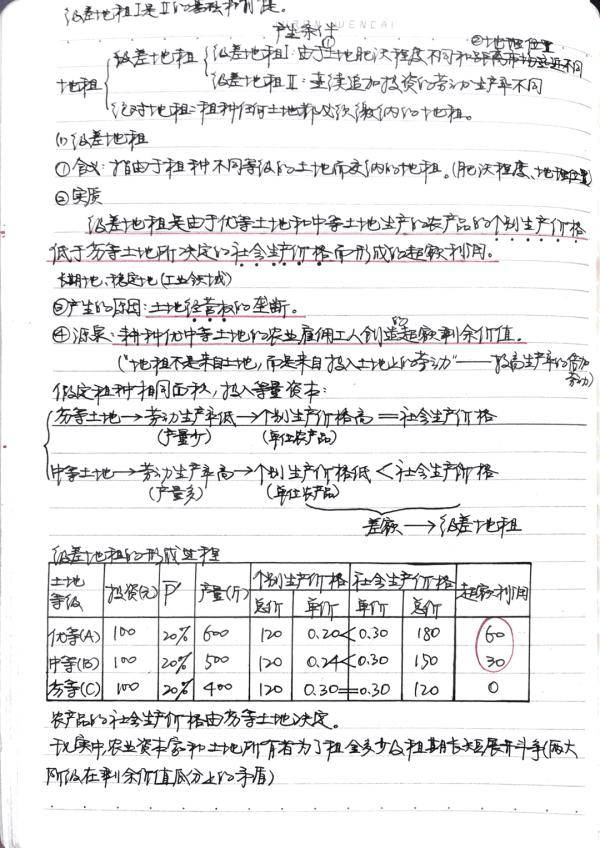 级差地租I是II的基础和前提。
产生条件
地租
级差地租
级差地租I：由于①土地肥沃程度不同和距离市场远近不同
②地理位置
级差地租II：连续追加投资的劳动生产率不同
绝对地租：租种任何土地都必须缴纳的地租。
(1)级差地租
①含义：指由于租种不同等级的土地而交纳的地租。(肥沃程度、地理位置)
②实质
级差地租是由于优等土地和中等土地生产的农产品的个别生产价格
低于劣等土地所决定的社会生产价格而形成的超额利润。
长期地、稳定地(工业领域)
③产生的原因：土地经营权的垄断。
④源泉：耕种优中等土地的农业雇佣工人创造的超额剩余价值。
("地租不是来自土地，而是来自投入土地上的劳动"——较高生产率的劳动)
假定租种相同面积，投入等量资本：
劣等土地→劳动生产率低→个别生产价格高＝社会生产价格
(产量少) (单位农产品)
中等土地→劳动生产率高→个别生产价格低＜社会生产价格
(产量多) (单位农产品)
差额→级差地租
级差地租的形成过程
土地等级 投资(元) P' 产量(斤) 个别生产价格 社会生产价格 超额利润
总价 单价 单价 总价
优等(A) 100 20% 600 120 0.20＜0.30 180 60
中等(B) 100 20% 500 120 0.24＜0.30 150 30
劣等(C) 100 20% 400 120 0.30＝0.30 120 0
农产品的社会生产价格由劣等土地决定。
现实中农业资本家和土地所有者为了租金多少及租期长短展开斗争(两大
阶级在剩余价值瓜分上的矛盾)